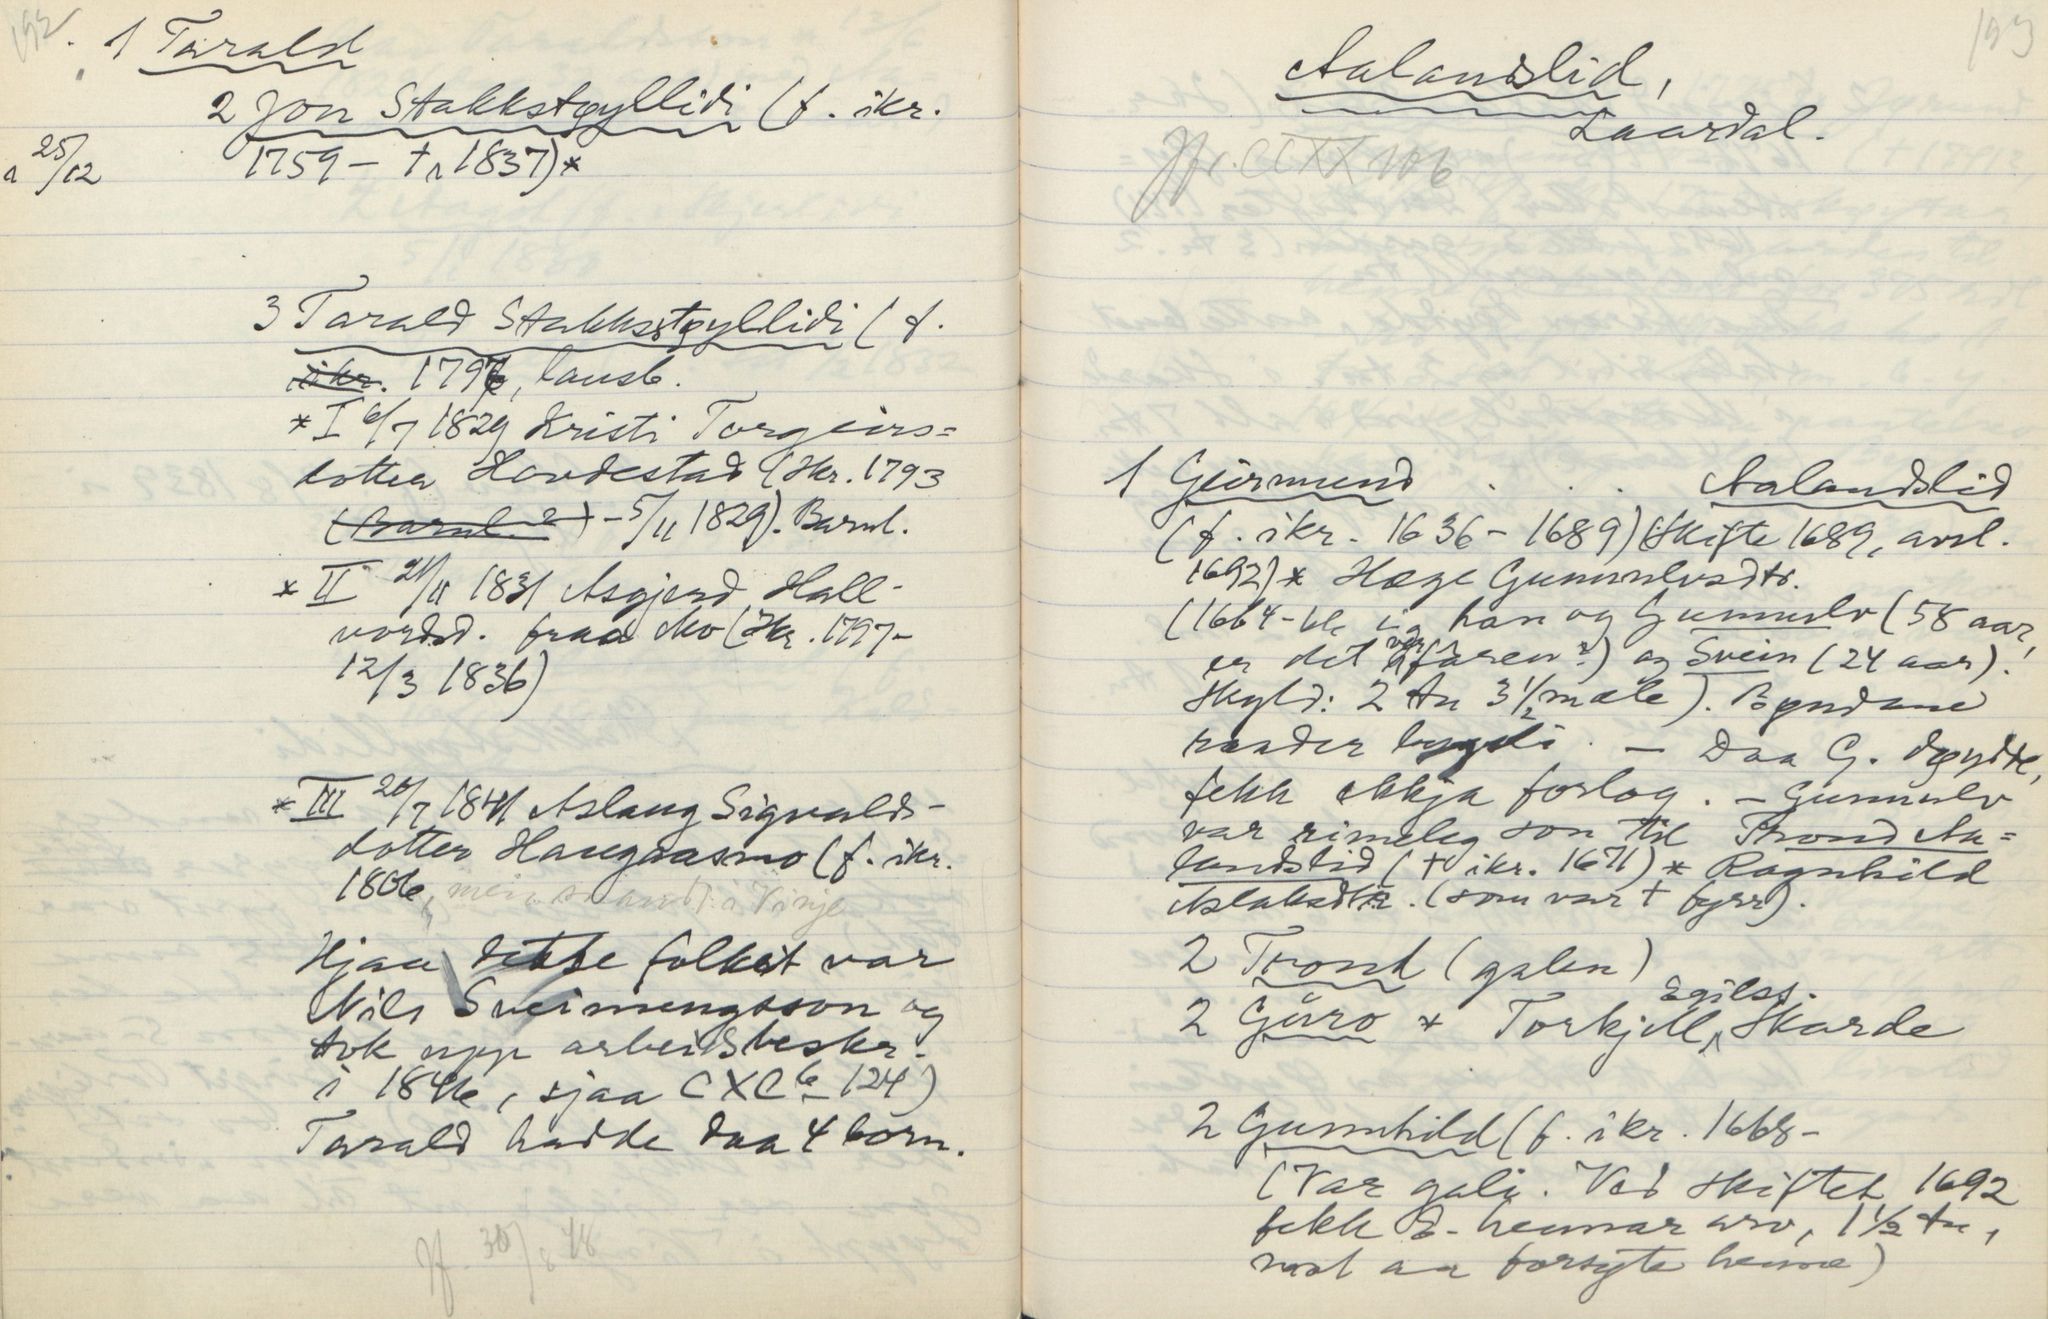 192.
1 Tarald
2 Jon Stakkstøyllidi (f. ikr.
25/12
1759 – † 1837)*
3 Tarald Stakkstøyllidi (f.
ikr. 1797, lausb.
* I 6/7 1829 Kristi Torgeirs=
dotter Hovdestad (ikr. 1793
(Barnl. ?) – 5/11 1829). Barnl.
* II 21/11 1831 Asgjerd Hall-
vordsd. fraa Mo (ikr. 1797–
12/3 1836)
* III 26/7 1841 Aslaug Sigvalds-
dotter Haugaasmo (f. ikr.
1806, i Vinje
Hjaa dette folket var
Nils Sveinungsson og
tok upp arbeidsbeskr.
i 1846, sjaa CXC6 124)
Tarald hadde daa 4 born.
Jf. 30/8 48
193
Aalandslid,
Laardal.
Jfr. CCXX 106
1 Geirmund . . . Aalandslid
(f. ikr. 1636 – 1689) (Skifte 1689, avsl.
1692) * Hæge Gunnulvsdtr.
(1664 – han og Gunnulv (58 aar,
er det verfaren?) og Svein (24 aar)!
Skyld: 2 tn 3 1/2 mæle). Bøndane
raader bygsli. – Daa G. døydde,
fekk ekkja forlog. – Gunnulv
var rimeleg son til Trond Aa=
landslid († ikr. 1671) * Ragnhild
Aslaksdtr. (som var † fyrr).
2 Trond (galen)
2 Guro * Torkjell Egilss. Skarde
2 Gunnhild (f. ikr. 1668 –
(Var gali. Ved skiftet 1692
fekk S. hennar arv, 1 1/2 tn,
mot aa forsyte henne)